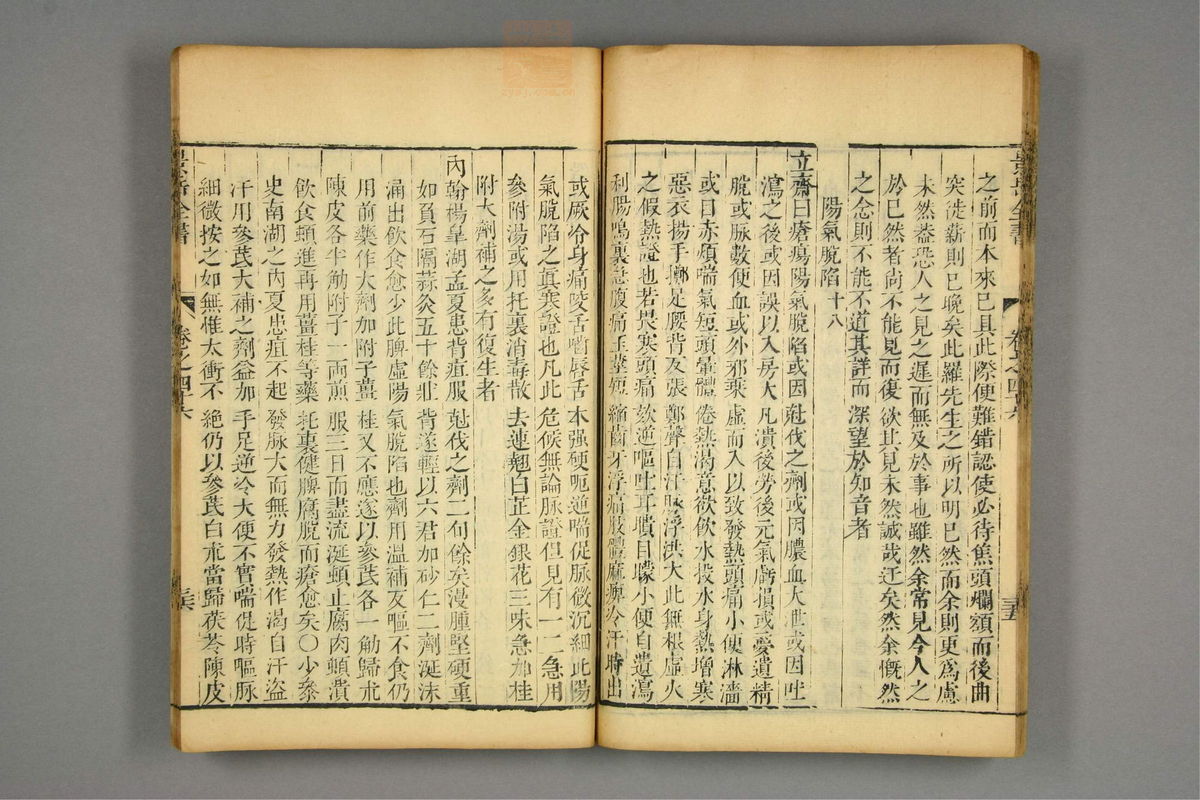 之前而本來已具此際便難錯認使必待焦頭爛額而後曲
突徙薪則已晚矣此羅先生之所以明已然而余則更爲慮
未然葢恐人之見之遲而無及於事也雖然余常見今人之
於已然者尚不能見而復欲其見未然誠哉迂矣然余慨然
之念則不能不道其詳而深望於知音者
陽氣脫陷十八
立齋曰瘡瘍陽氣脫陷或因尅伐之劑或因膿血大泄或因吐
瀉之後或因誤以入房大凡潰後勞後元氣虧損或憂遺精
脫或脉數便血或外邪乘虛而入以致發熱頭痛小便淋濇
或目赤煩喘氣短頭暈體倦熱渴意欲飲水投水身熱增寒
惡衣揚手擲足腰背反張鄭聲自汗脉浮洪大此無根虛火
之假熱證也若畏寒頭痛欬逆嘔吐耳聵目矇小便自遺瀉
利腸鳴裏急腹痛玉莖短縮齒牙浮痛肢體麻痺冷汗時出
或厥冷身痛咬舌嚙唇舌本强硬呃逆喘促脉微沉細此陽
氣脫陷之眞寒證也凡此危候無論脉證但見有一二急用
參附湯或用托裏消毒散去連翹白芷金銀花三味急加桂
附大劑補之多有復生者
內翰楊皐湖孟夏患背疽服尅伐之劑二旬餘矣漫腫堅硬重
如負石隔蒜灸五十餘壯背遂輕以六君加砂仁二劑涎沫
涌出飲食愈少此脾虛陽氣脫陷也劑用溫補反嘔不食仍
用前藥作大劑加附子薑桂又不應遂以參芪各一觔歸朮
陳皮各半觔附子一兩煎服三日而盡流涎頓止腐肉頓潰
飲食頓進再用薑桂等藥托裏健脾腐脫而瘡愈矣○少叅
史南湖之內夏患疽不起發脉大而無力發熱作渴自汗盜
汗用參芪大補之劑益加手足逆冷大便不實喘促時嘔脉
細微按之如無惟太衝不絶仍以參芪白朮當歸茯苓陳皮
景岳全書
卷之四六
三五
景岳全書
卷之四六
三六
zysj.com.cn